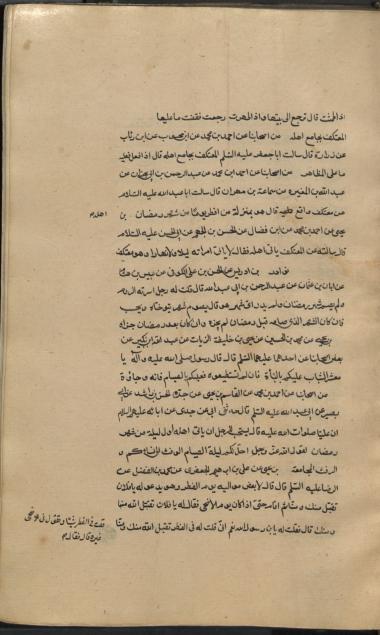 اذا طمثت قال ترجع الى بيتها واذا طهرت رجعت فقضت ما عليها
المعتكف يجامع اهله من اصحابنا عن احمد بن محمد عن ابن محبوب عن ابن رئاب
عن زرارة قال سالت ابا جعفر عليه السلم المعتكف يجامع اهله قال اذا فعل فعليه
ما على المظاهر من اصحابنا عن احمد بن محمد عن عبد الرحمن بن ابي نجران عن
عبد الله بن المغيرة عن سماعة بن مهران قال سالت ابا عبد الله عليه السلام
عن معتكف واقع اهله قال هو بمنزلة من افطر يوما من شهر رمضان بن
يحيى عن احمد بن محمد عن ابن فضال عن الحسن بن الجهم عن ابي الحسن عليه السلام
قال سالته عن المعتكف ياتي اهله فقال لا ياتي امراته ليلا ولا نهارا وهو معتكف
نوادر بن ادريس عن الحسن بن علي الكوفي عن عبيس بن هشام
عن ابان بن عثمان عن عبد الرحمن بن ابي عبد الله قال قلت له رجل اسرته الروم
ولم يصم شهر رمضان ولم يدر اي شهر هو قال يصوم شهر يتوخاه ويحسب
فان كان الشهر الذي صامه قبل رمضان لم يجزه وان كان بعد رمضان اجزاه
يحيى عن محمد بن الحسين عن يحيى بن خليفة الزيات عن عبد الله بن بكير عن
بعض اصحابنا عن احدهما عليهما السلم قال قال رسول الله صلى الله عليه واله يا
معشر الشباب عليكم بالباة فان لم تستطيعوه فعليكم بالصيام فانه وجاؤه
من اصحابنا عن احمد بن محمد عن القاسم بن يحيى عن جده الحسن بن راشد عن ابي
بصير عن ابي عبد الله عليه السلم قال حدثني ابي عن جدي عن ابائه عليهم السلام
ان عليا صلوات الله عليه قال يستحب للرجل ان ياتي اهله اول ليلة من شهر
رمضان لقول الله عز وجل احل لكم ليلة الصيام الرفث الى نسائكم و
الرفث المجامعة بن يحيى عن علي بن ابراهيم الجعفري عن محمد بن الفضل عن
الرضا عليه السلم قال قال لبعض مواليه يوم الفطر وهو يدعو له يا فلان
تقبل منك ومنا ثم اقام حتى اذا كان يوم الاضحى فقال له يا فلان تقبل الله منا
ومنك قال فقلت له يابن رسول الله قلت له في الفطر تقبل الله منك ومنا